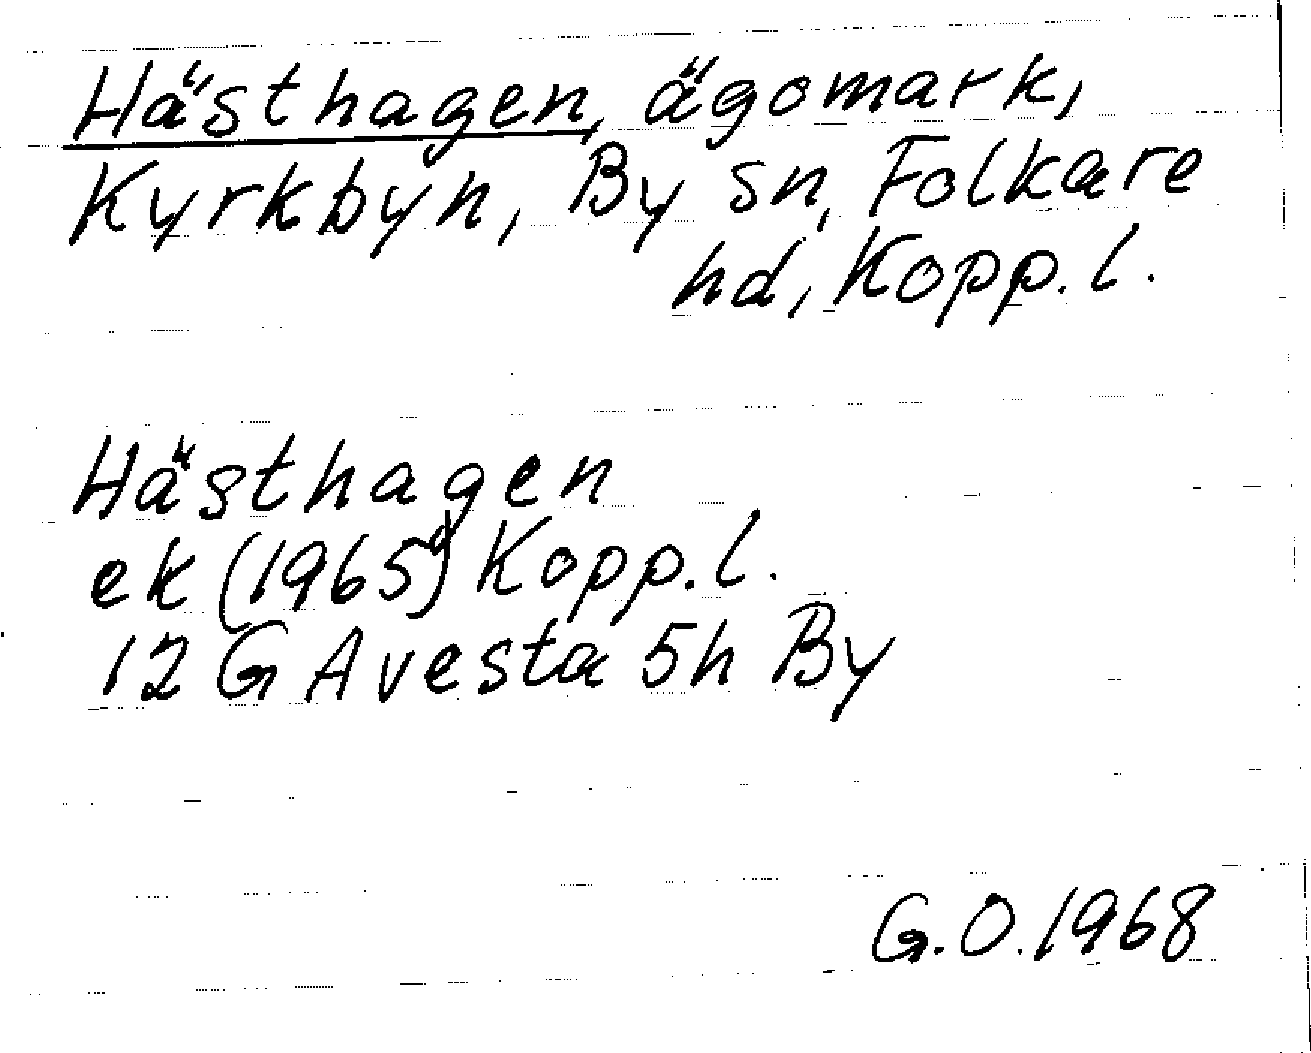 Hästhagen, ägomark,
Kyrkbyn, By sn, Folkare
hd, Kopp. l.
Hästhagen
ek (1965) Kopp. l.
12 G Avesta 5h By
G.O. 1968